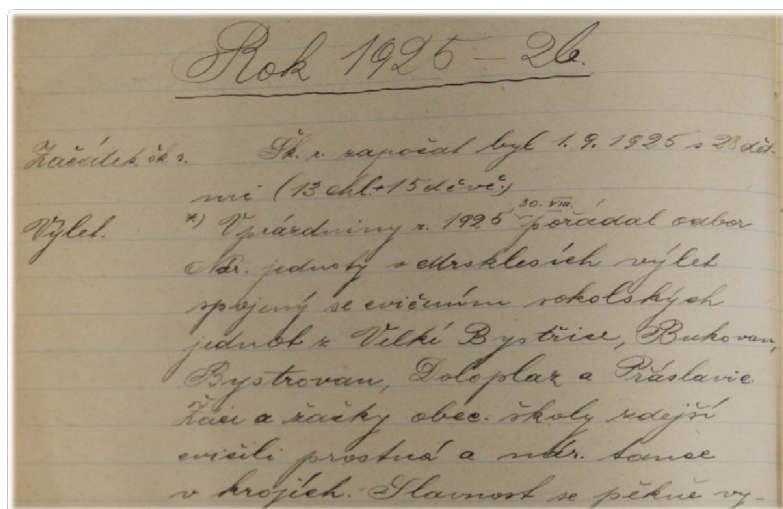 Rok 1925 – 26.
Začátek šk. r. Šk. r. započat byl 1. 9. 1925 s 28 dět-
mi (13 chl. + 15 děvč.)
30. VIII.
Výlet. *) V prázdniny r. 1925 pořádal odbor
Nár. jednoty v Mrsklesích výlet
spojený se cvičením sokolských
jednot z Velké Bystřice, Bukovan,
Bystrovan, Doloplaz a Přáslavic
Žáci a žačky obec. školy zdejší
cvičili prostná a nár. tance
v krojích. Slavnost se pěkně vy-